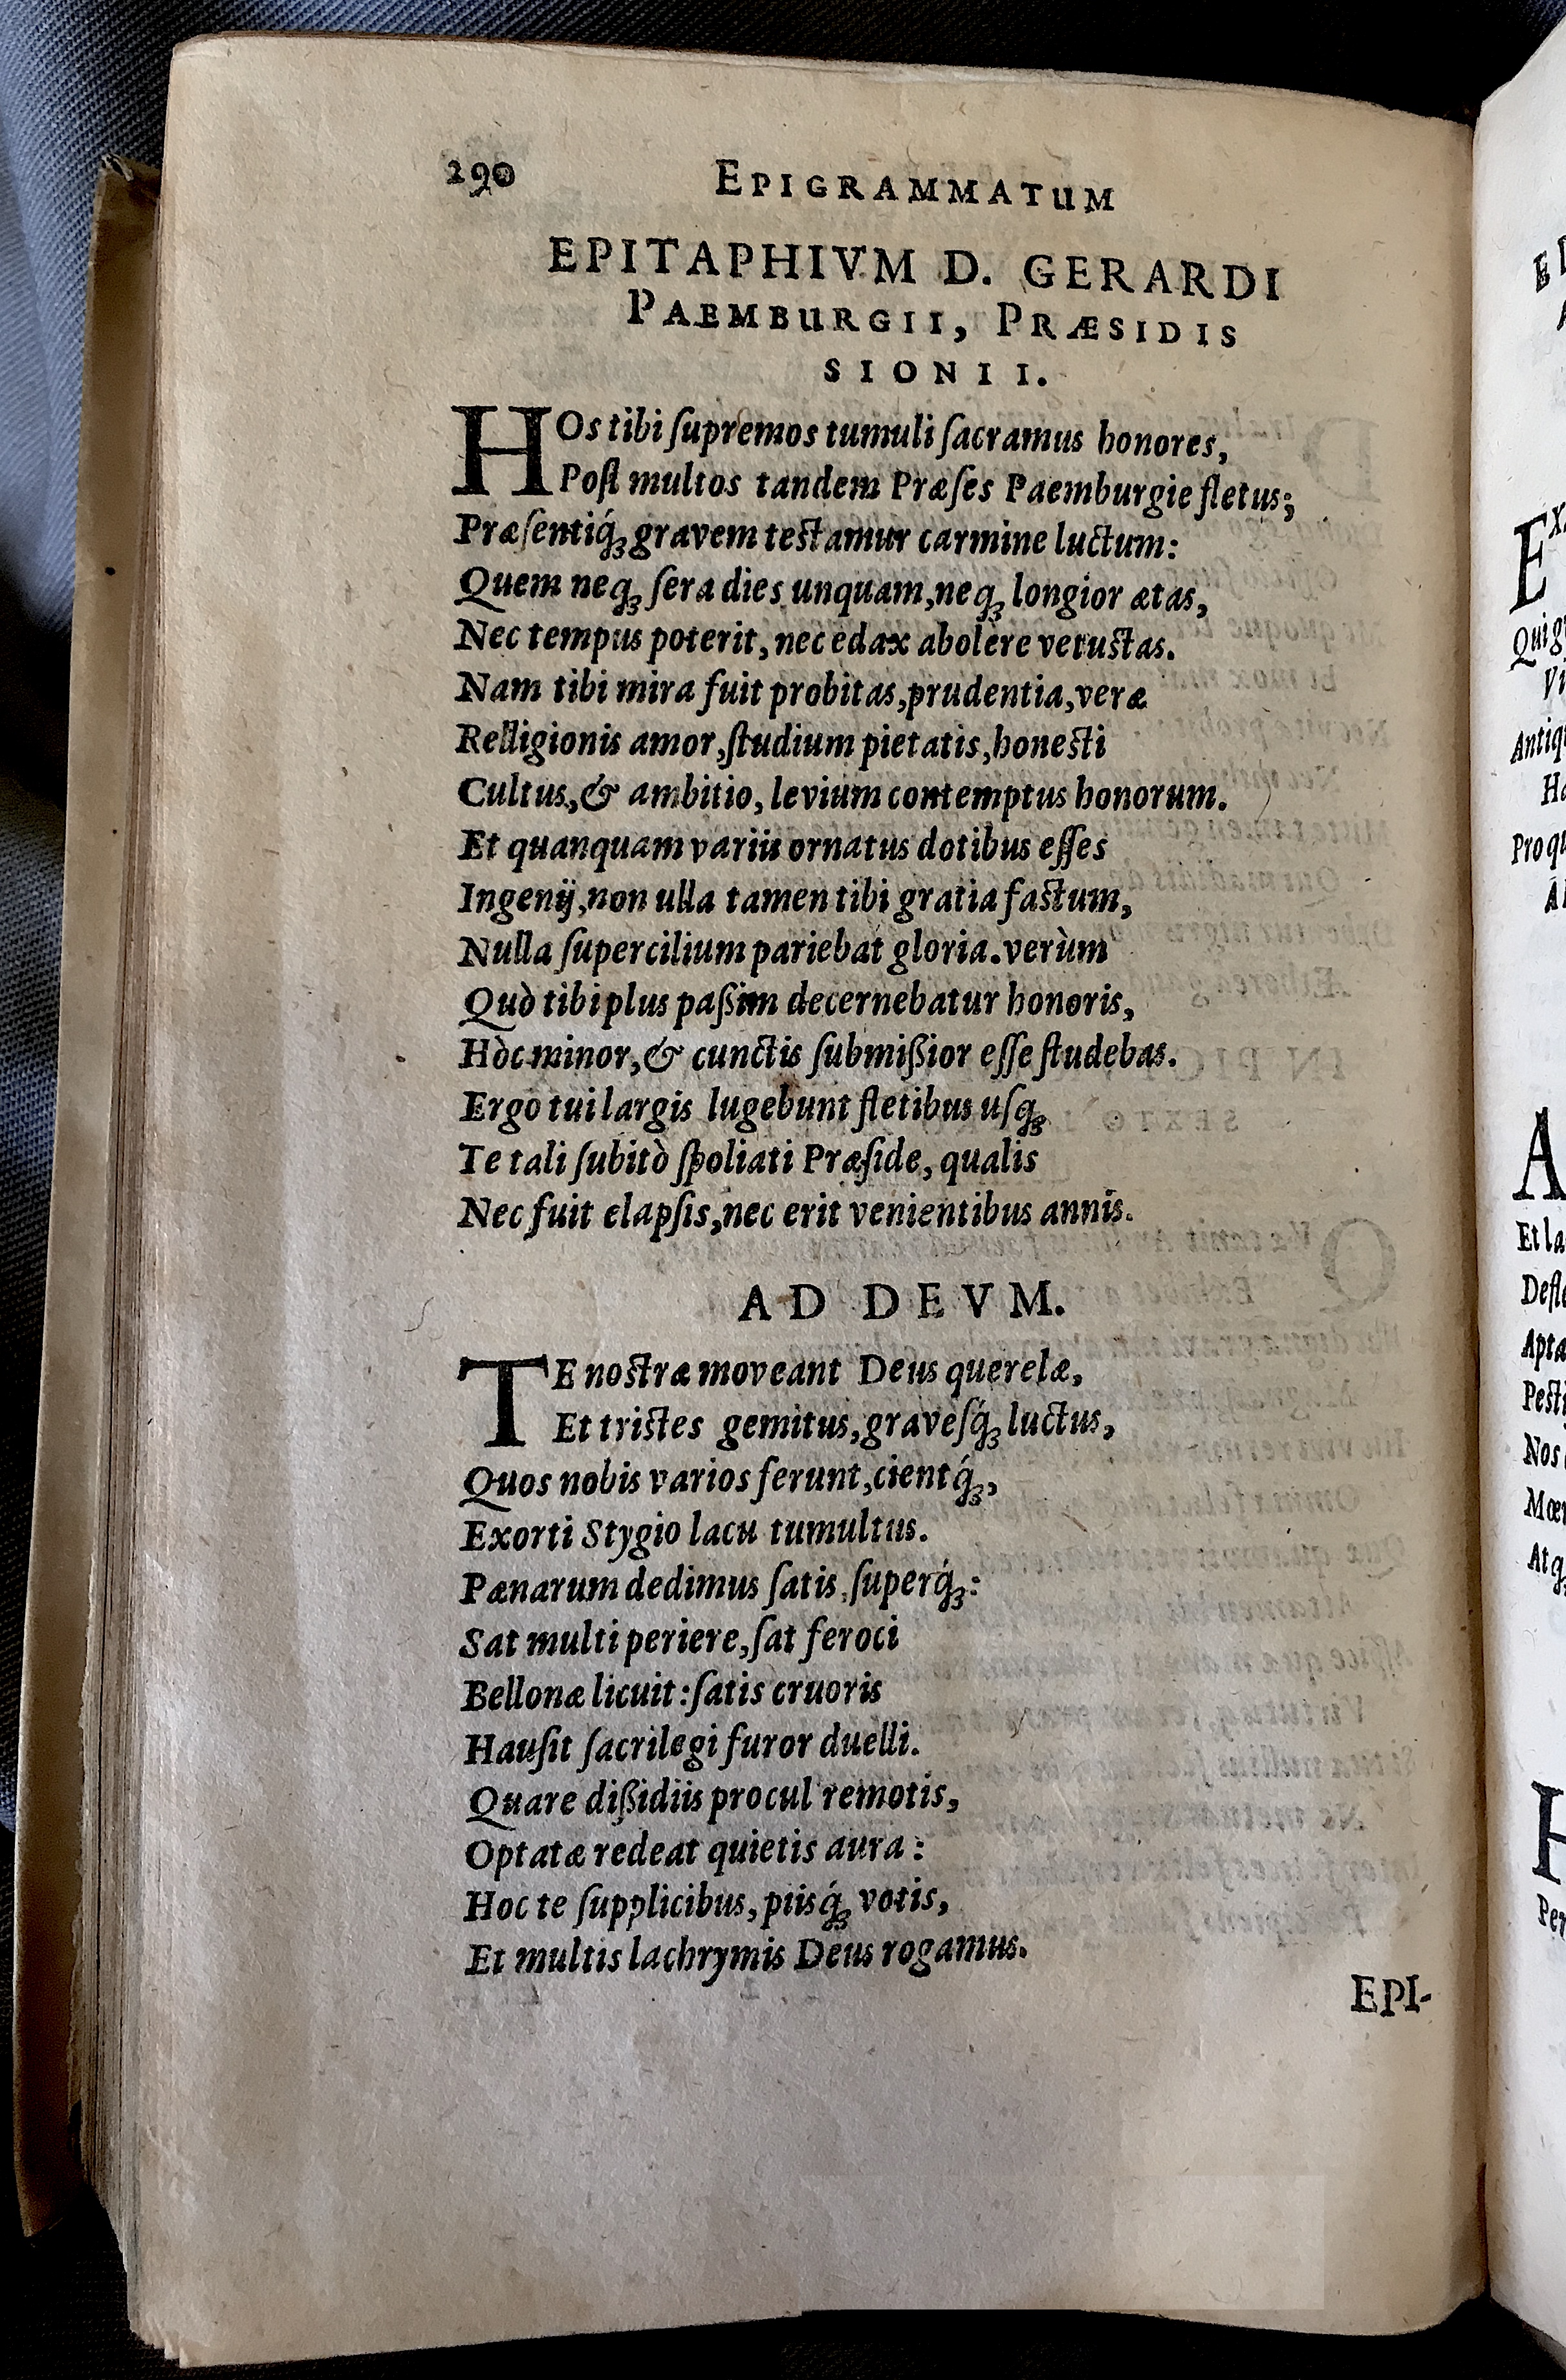 290 EPIGRAMMATUM
EPITAPHIVM D. GERARDI
PAEMBURGII, PRÆSIDIS
SIONII.
HOs tibi ſupremos tumuli ſacramus honores,
Poſt multos tandem Præſes Paemburgie fletus;
Præſentiq́ꝫ gravem teſtamur carmine luctum:
Quem neqꝫ ſera dies unquam, neqꝫ longior ætas,
Nec tempus poterit, nec edax abolere vetuſtas.
Nam tibi mira fuit probitas, prudentia, veræ
Relligionis amor, ſtudium pietatis, honeſti
Cultus, & ambitio, levium contemptus honorum.
Et quanquam variis ornatus dotibus eſſes
Ingenij, non ulla tamen tibi gratia faſtum,
Nulla ſupercilium pariebat gloria. verùm
Quò tibi plus paßim decernebatur honoris,
Hòc minor, & cunctis ſubmißior eſſe ſtudebas.
Ergo tui largis lugebunt fletibus uſqꝫ
Te tali ſubitò ſpoliati Præſide, qualis
Nec fuit elapſis, nec erit venientibus annis.
AD DEVM.
TE noſtræ moveant Deus querelæ,
Et triſtes gemitus, graveſq́ꝫ luctus,
Quos nobis varios ferunt, cientq́ꝫ,
Exorti Stygio lacu tumultus.
Pænarum dedimus ſatis, ſuperq́ꝫ:
Sat multi periere, ſat feroci
Bellonæ licuit: ſatis cruoris
Hauſit ſacrilegi furor duelli.
Quare dißidiis procul remotis,
Optatæ redeat quietis aura:
Hoc te ſupplicibus, piisq́ꝫ votis,
Et multis lachrymis Deus rogamus.
EPI-